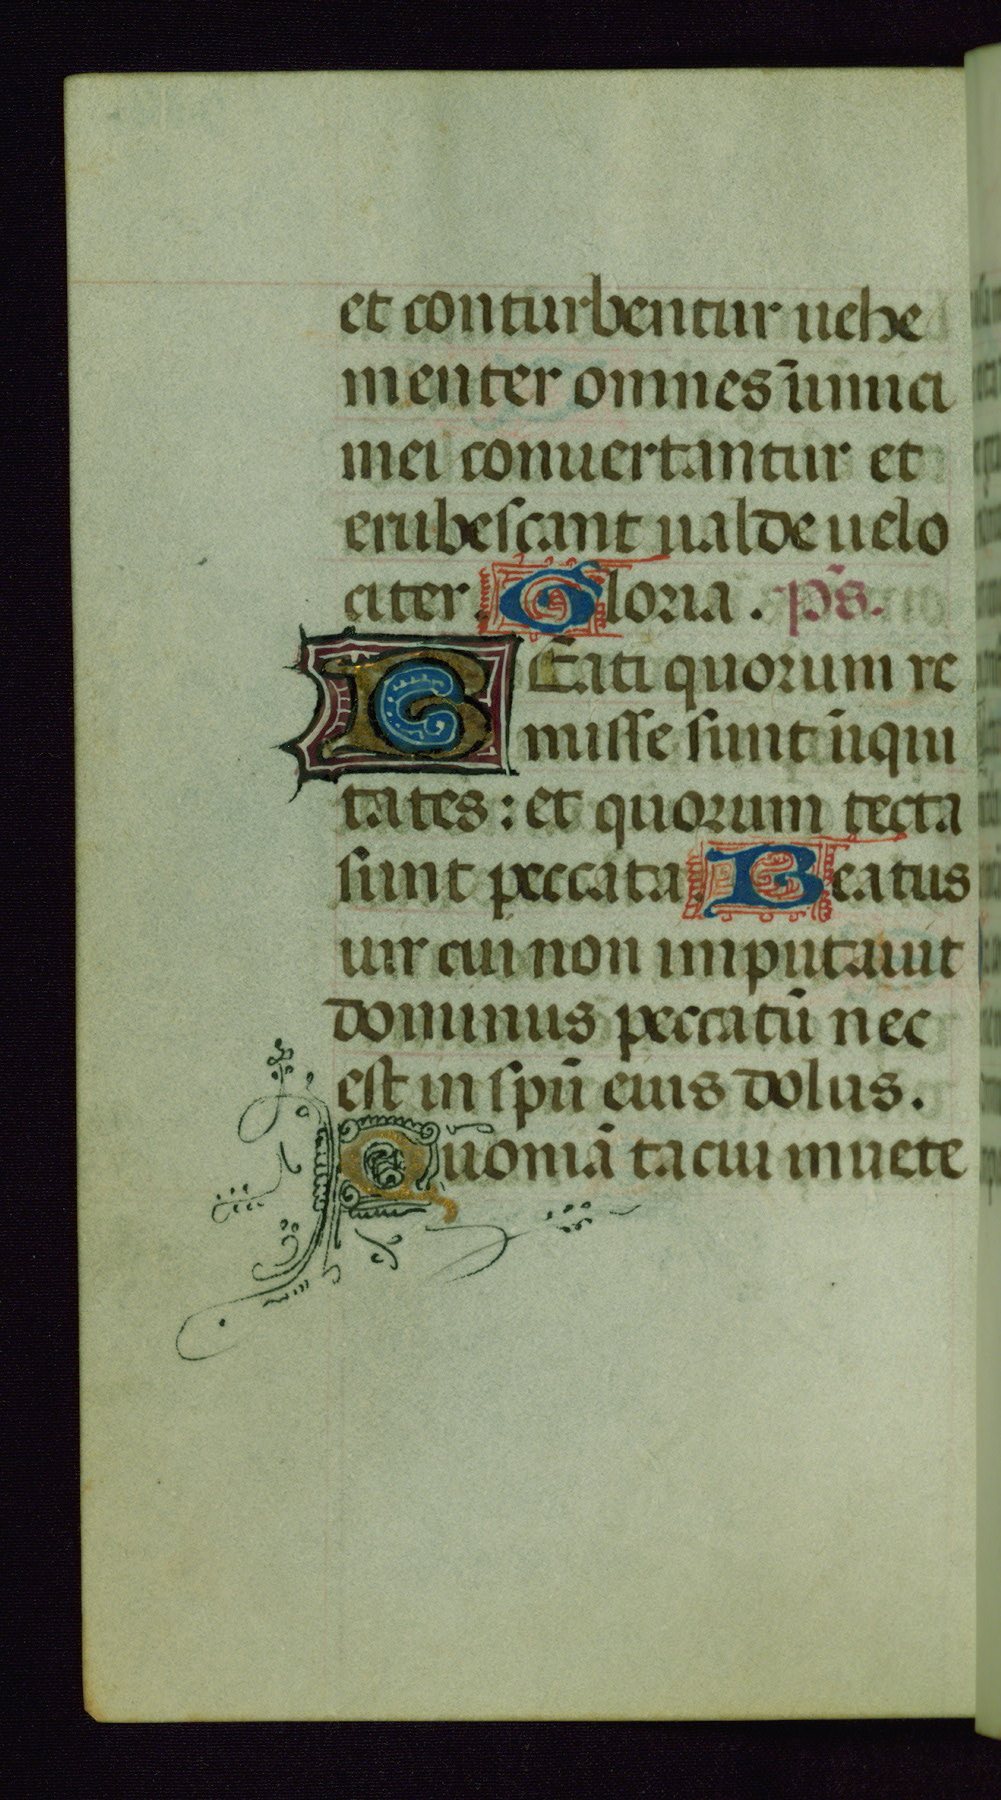 et conturbentur uehe
menter omnes inimici
mei conuertantur et
erubescant ualde uelo
citer. Gloria. ps̄.
BEati quorum re
misse sunt īiqui
tates : et quorum tecta
sunt peccata Beatus
uir cui non imputauit
dominus peccatū nec
est in spū eius dolus.
Quoniā tacui inuete